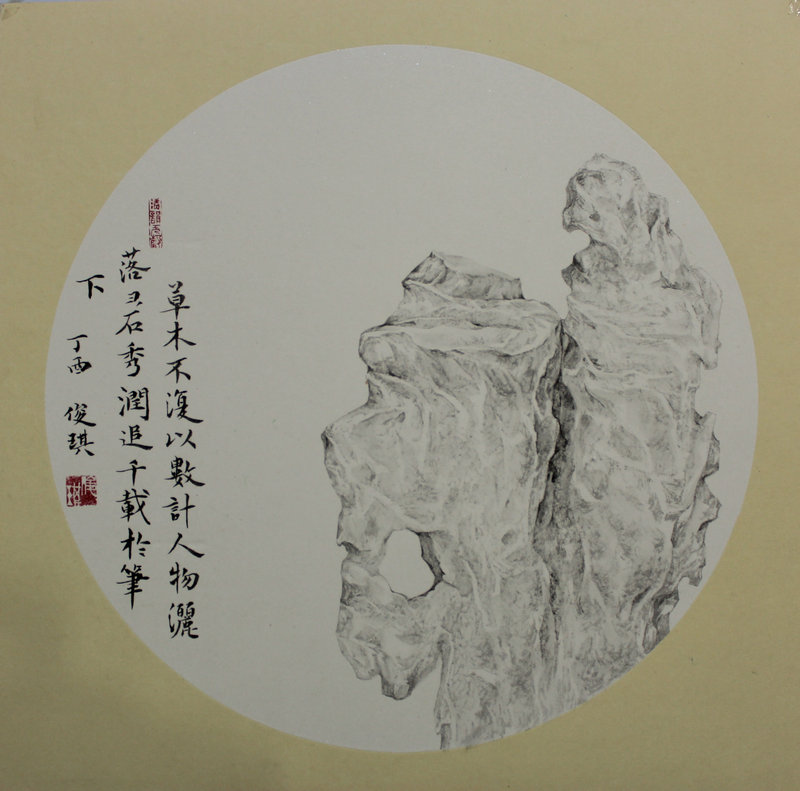 草木不復以數計人物灑
落呈石秀潤追千載於筆
下
丁酉 俊琪